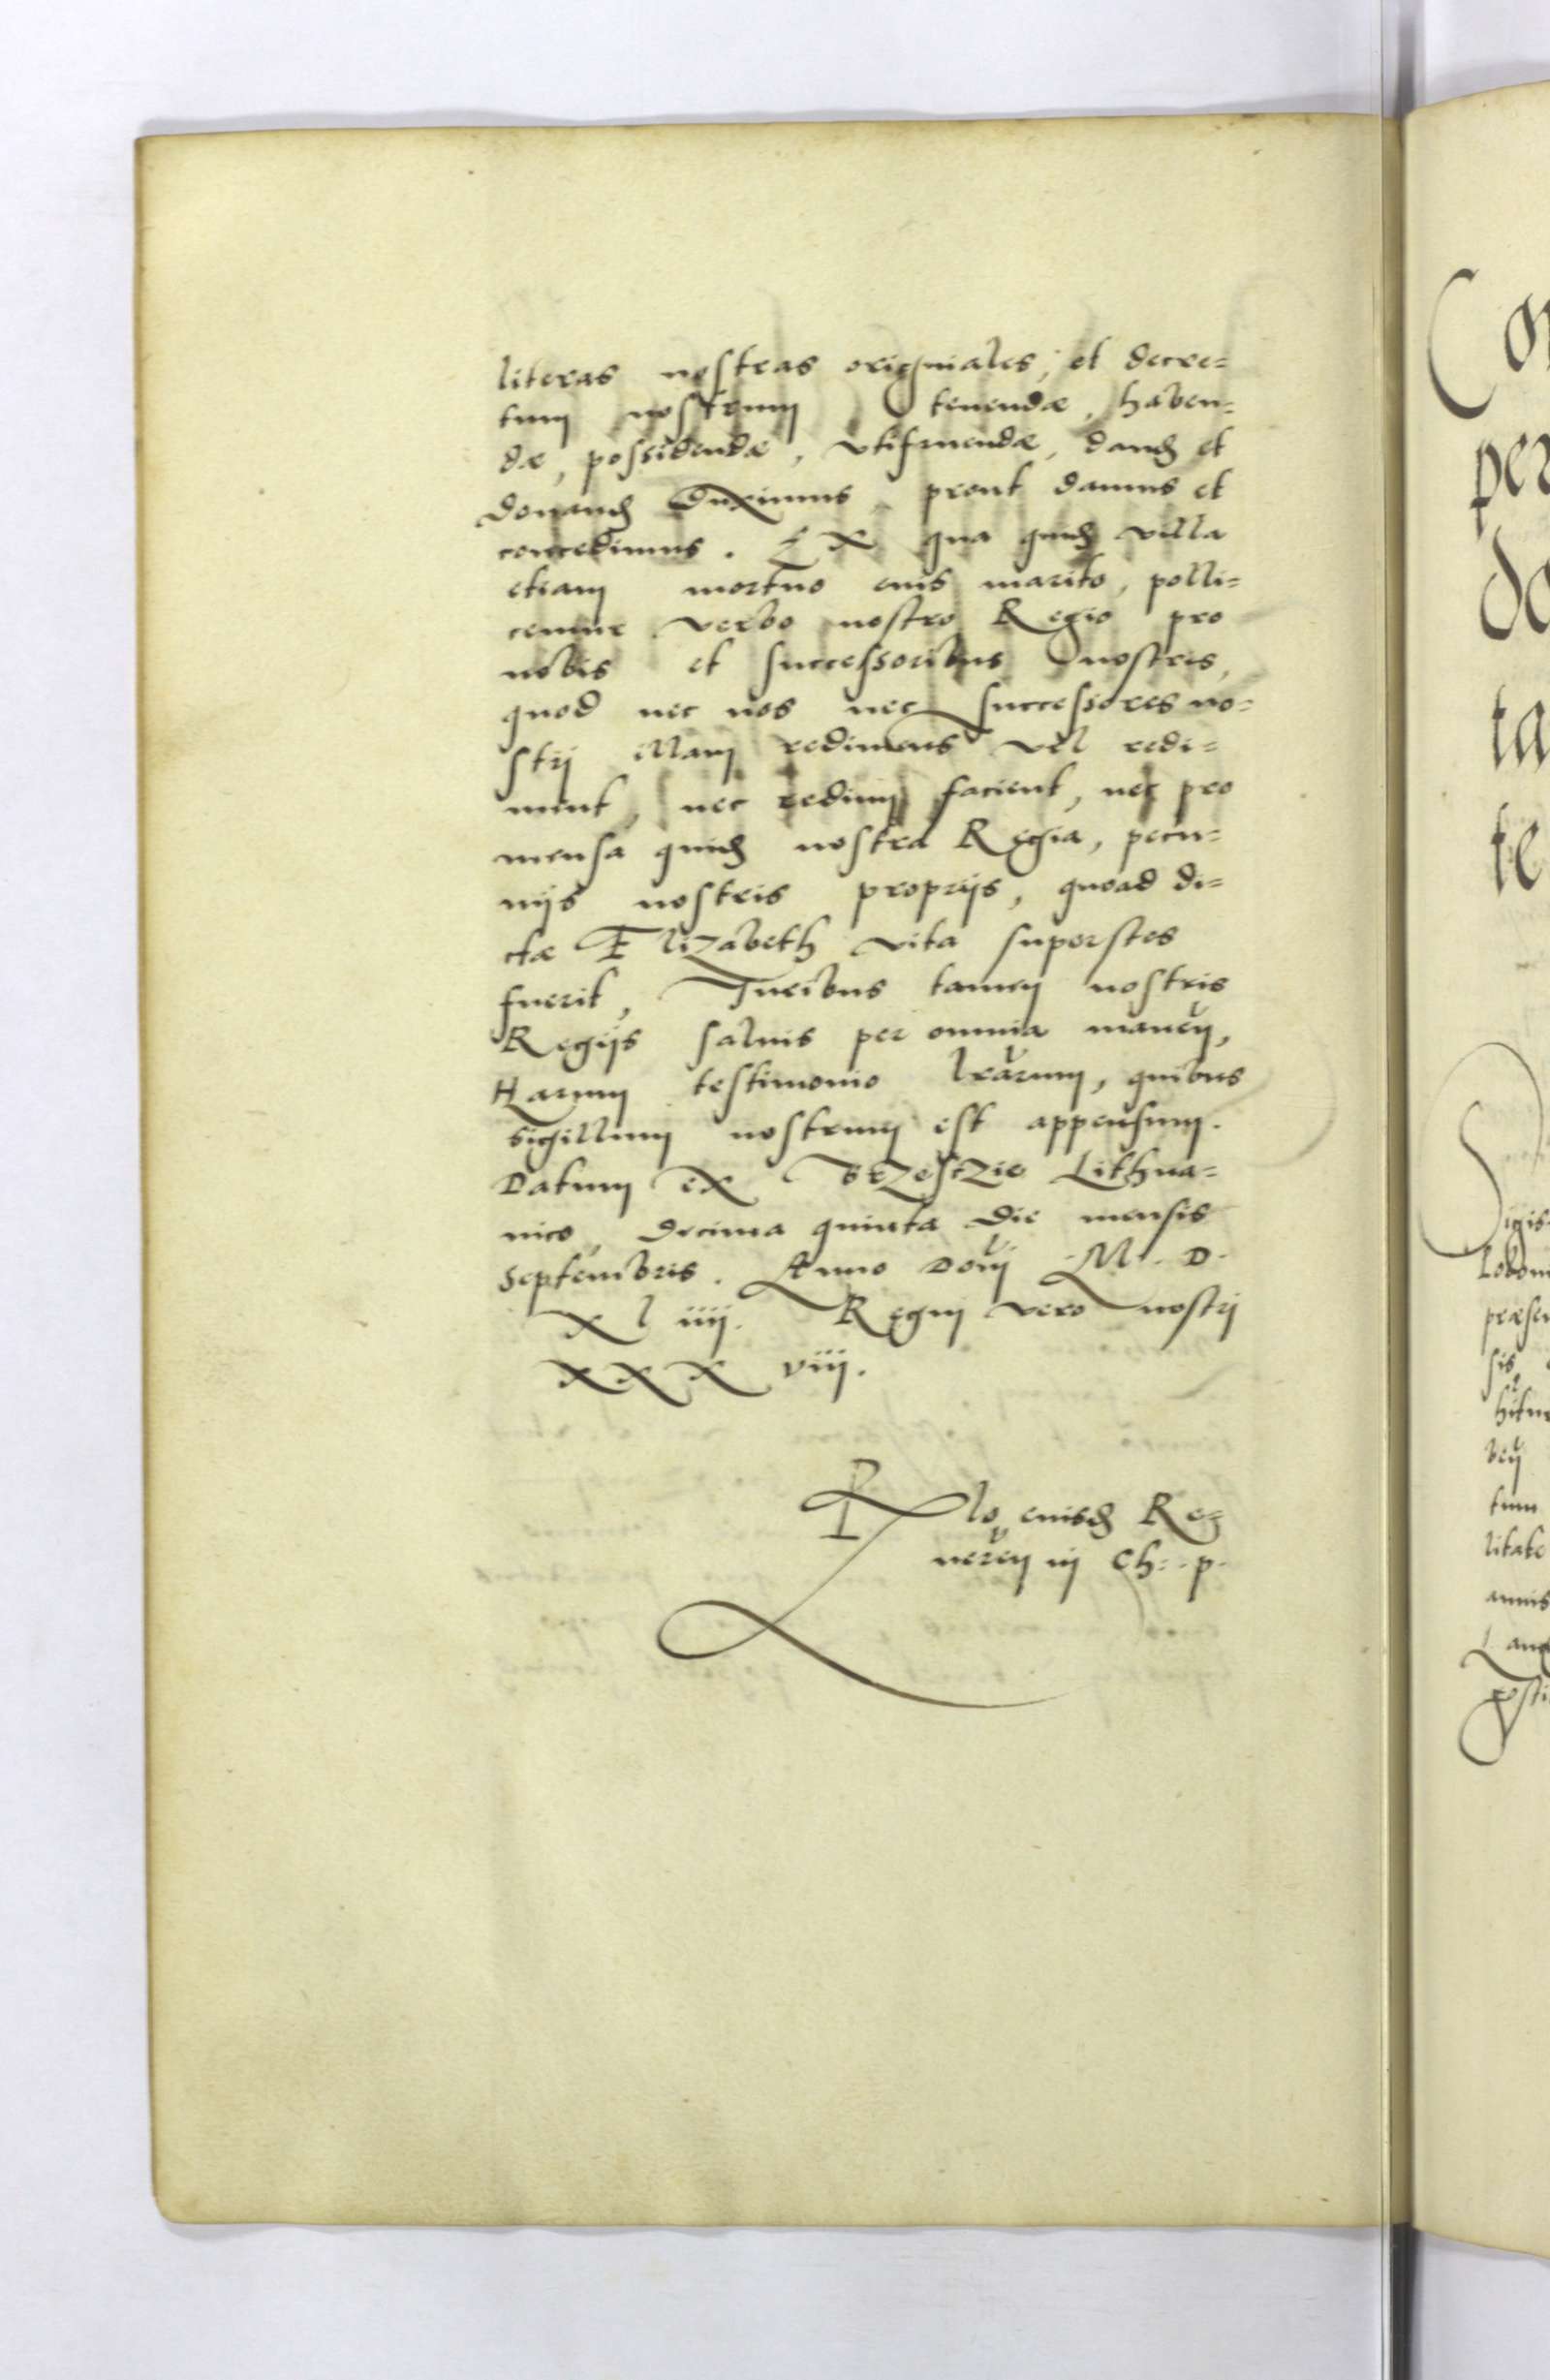 literas nostras originales, et decre=
tum nostrum tenendæ, haben=
dæ, possidendæ, vtifruendæ, dand et
donand duximus prout damus et
concedimus. Ex qua quid villa
etiam mortuo eius marito, polli=
cemur verbo nostro Regio pro
nobis et successoribus nostris,
quod nec nos nec successores no=
strj illam redimemus vel redi=
ment, nec redimj facient, nec pro
mensa quid nostra Regia, pecu=
nijs nostris proprijs, quoad di=
ctæ Elizabeth vita superstes
fuerit, Juribus tamen nostris
Regijs saluis per omnia manen,
Harum testimonio lrarum, quibus
sigillum nostrum est appensum.
Datum ex Brzesczie Lithua=
nico, decima quinta die mensis
Septembris. Anno Donj M. D.
x l iiij. Regnj vero nostrj
x x x viij.
lo eiusd Re=
ueren in Ch: p.
Co
per
do
ta
te
Sigis
præsen
sis
tum
litate
annis